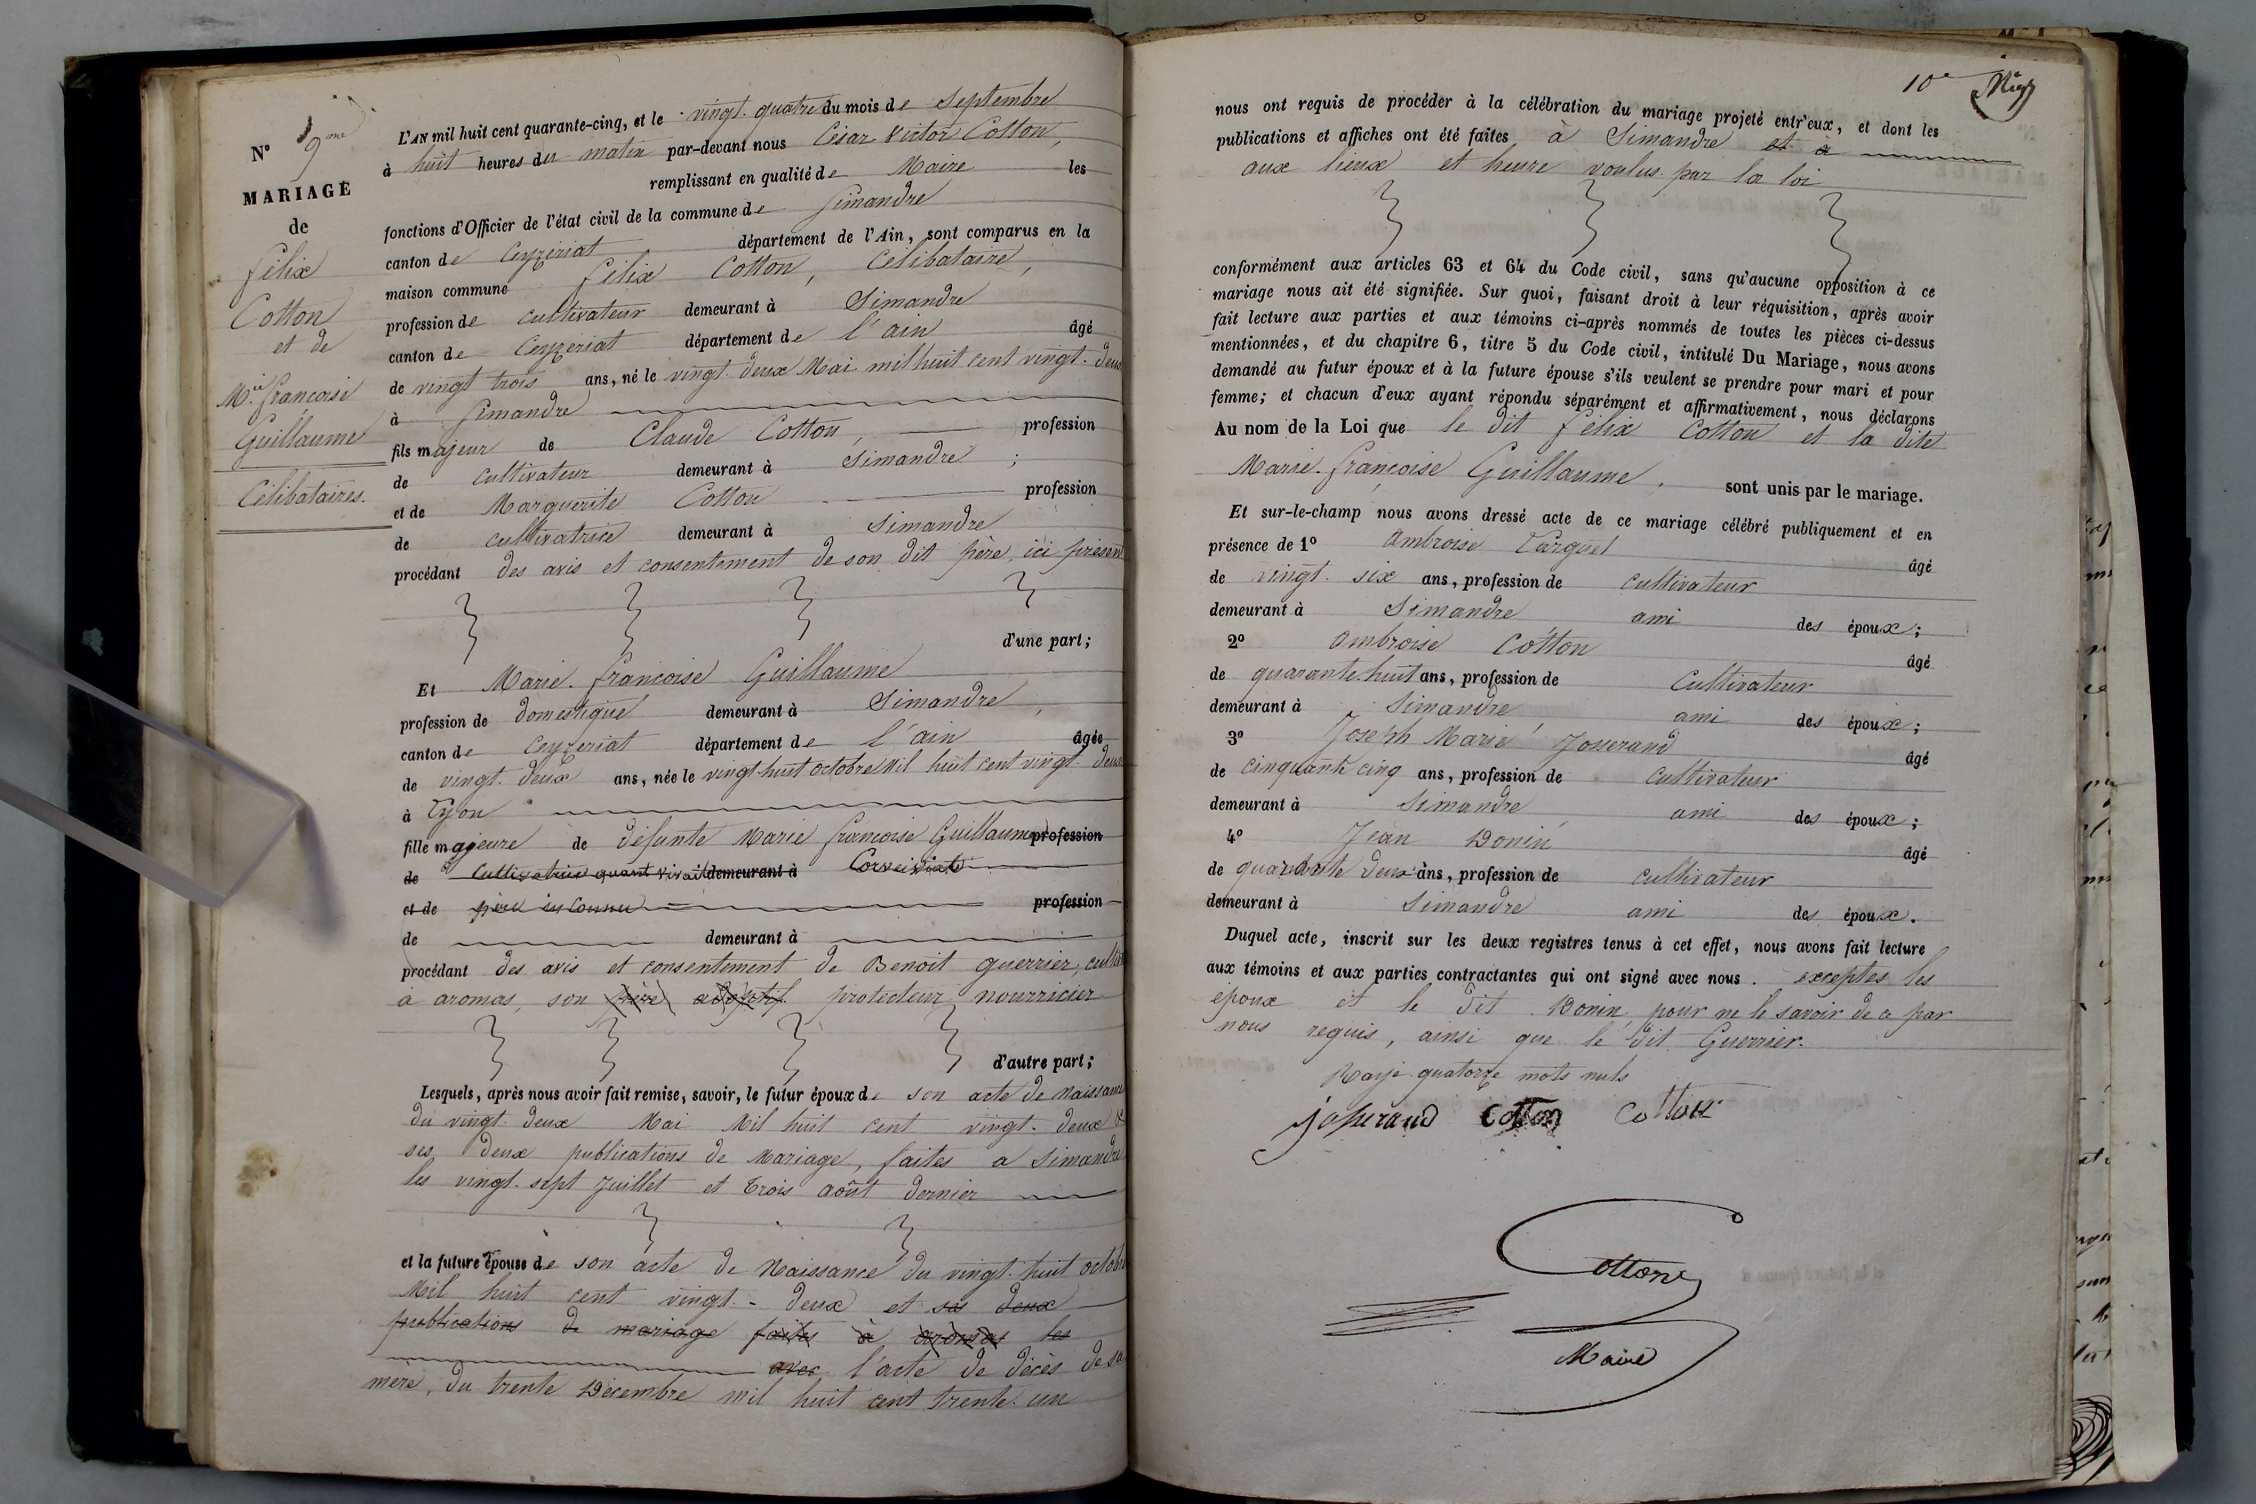 N° 9me
MARIAGE
de
Félix
Cotton
et de
Mie françoise
Guillaume
Célibataires.
L'AN mil huit cent quarante-cinq, et le vingt-quatre du mois de Septembre
à huit heures du matin par-devant nous César Victor Cotton,
remplissant en qualité de Maire les
fonctions d'Officier de l'état civil de la commune de Simandre
canton de Ceyzériat département de l'Ain, sont comparus en la
maison commune Félix Cotton, Célibataire,
profession de cultivateur demeurant à Simandre
canton de Ceyzeriat département de l'ain âgé
de vingt trois ans, né le vingt deux Mai mil huit cent vingt-deux
à Simandre
fils majeur de Claude Cotton, profession
de cultivateur demeurant à Simandre ;
et de Marguerite Cotton profession
de cultivatrice demeurant à Simandre
procédant des avis et consentement de son dit père, ici présent
d'une part;
Et Marie-françoise Guillaume
profession de domestique demeurant à Simandre,
canton de Ceyzeriat département de l'ain âgée
de vingt-deux ans, née le vingt-huit octobre Mil huit cent vingt-deux
à Lyon
fille majeure de défunte Marie françoise Guillaume profession
de Cultivatrice quant vivait demeurant à Corveissiat
et de père inconnu profession
de demeurant à
procédant des avis et consentement de Benoit guerrier,
à aromas, son père adoptif protecteur nourricier
d'autre part;
Lesquels, après nous avoir fait remise, savoir, le futur époux de son acte de Naissance
du vingt-deux Mai Mil huit cent vingt-deux &
ses deux publications de Mariage, faites a Simandre
les vingt-sept Juillet et trois août dernier
et la future épouse de son acte de Naissance du vingt-huit octobre
Mil huit cent vingt-deux et ses deux
publications de mariage faites à aromas les
avec l'acte de décès de sa
mère, du trente Décembre mil huit cent trente-un
10e
nous ont requis de procéder à la célébration du mariage projeté entr'eux, et dont les
publications et affiches ont été faites à Simandre et à
aux lieux et heure voulus par la loi
conformément aux articles 63 et 64 du Code civil, sans qu'aucune opposition à ce
mariage nous ait été signifiée. Sur quoi, faisant droit à leur réquisition, après avoir
fait lecture aux parties et aux témoins ci-après nommés de toutes les pièces ci-dessus
mentionnées, et du chapitre 6, titre 5 du Code civil, intitulé Du Mariage, nous avons
demandé au futur époux et à la future épouse s'ils veulent se prendre pour mari et pour
femme; et chacun d'eux ayant répondu séparément et affirmativement, nous déclarons
Au nom de la Loi que le dit félix Cotton et la dite
Marie-françoise Guillaume, sont unis par le mariage.
Et sur-le-champ nous avons dressé acte de ce mariage célébré publiquement et en
présence de 1° Ambroise âgé
de vingt-six ans, profession de cultivateur
demeurant à Simandre ami des époux;
2° Ambroise Cotton âgé
de quarante-huit ans, profession de Cultivateur
demeurant à Simandre ami des époux;
3° Joseph Marie Josserand âgé
de cinquante cinq ans, profession de cultivateur
demeurant à Simandre ami des époux;
4° Jean Bonin âgé
de quarante deux ans, profession de cultivateur
demeurant à Simandre ami des époux.
Duquel acte, inscrit sur les deux registres tenus à cet effet, nous avons fait lecture
aux témoins et aux parties contractantes qui ont signé avec nous. exceptés les
époux et le dit Bonin, pour ne le savoir de a par
nous requis, ainsi que le dit Guerrier.
Rayé quatorze mots nuls
josserand Cotton Cotton
Cotton
Maire